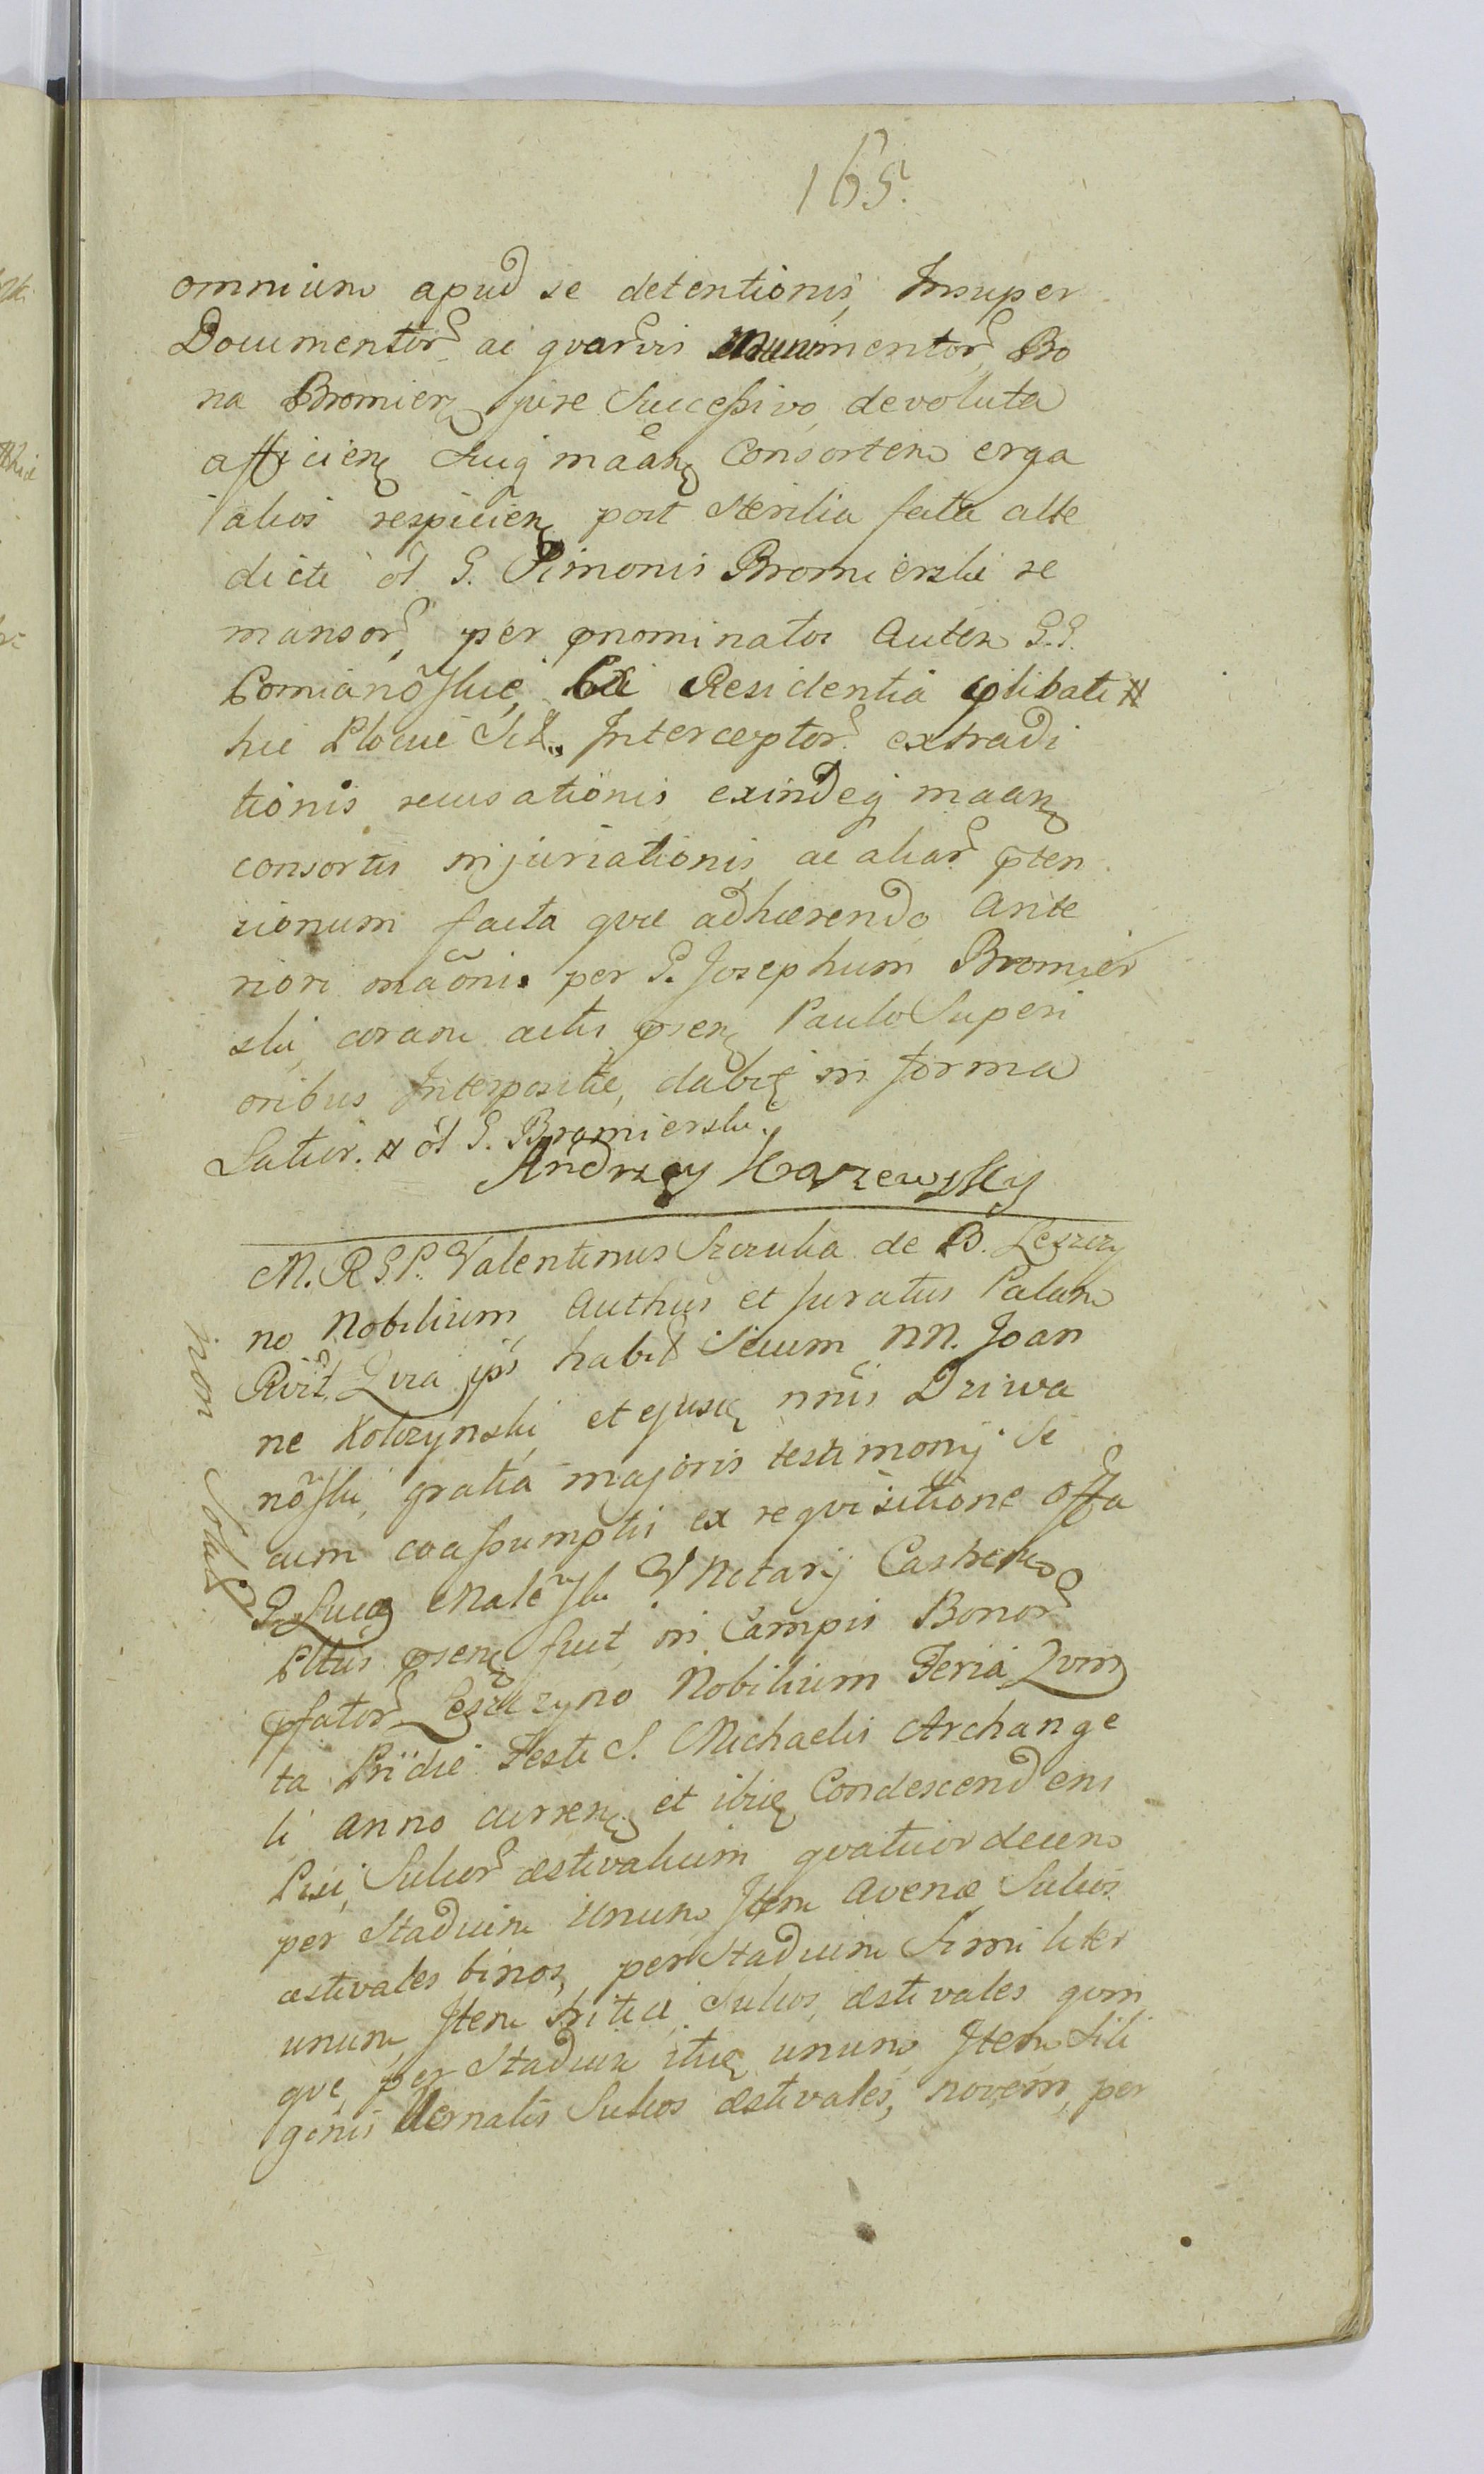 165.
omnium apud se detentionis, Insuper
Documentor ac qvarvis Munimentor, Bo
na Bromierz jure Successivo devoluta
afficien Suiq maan Consortem erga
alios respicien post sterilia fata alte
dicti ol G. Simonis Bromierski re
mansor, per pnominatos autem G.G.
Pomianoskie, Ex Residentia plibati #
hic Plociæ Sit. Interceptor extradi
tionis recusationis exindeq maan
consortis injuriationis, ac aliar pten
sionum facta qvæ adhærendo ante
riori maoni per G. Josephum Bromier
ski coram actis psen Paulo Superi
oribus Interpositæ, dabit in forma
Latior. # ol G. Bromierski
Andrzey Karzewsky
M. R G.P. Valentinus Szczulia de B. Leszczy
no Nobilium Authus et Juratus Palam
Rvit, Qvia ips habit Secum NN. Joan
ne Kolczynski et ejusd nnis Dziwa
noski, gratia majoris testimonij Se
cum coassumptis ex reqvisitione Offa
G. Lucæ Maleski V Notarij Castren
Pltus psen fuit in Campis Bonor
pfator Leszczyno Nobilium Feria Qvin
ta Pridie Festi S. Michaelis Archange
li anno curren et ibid Condescendens
Pisi Sulcor æstivalium qvatuordecem
per Stadium unum Item avenæ Sulcos
æstivales binos, per Stadium Similiter
unum, Item tritici Sulcos æstivales qvin
qve per Stadium itid unum Item Sili
ginis Vernalis Sulcos æstivales, novem, per
non Solut